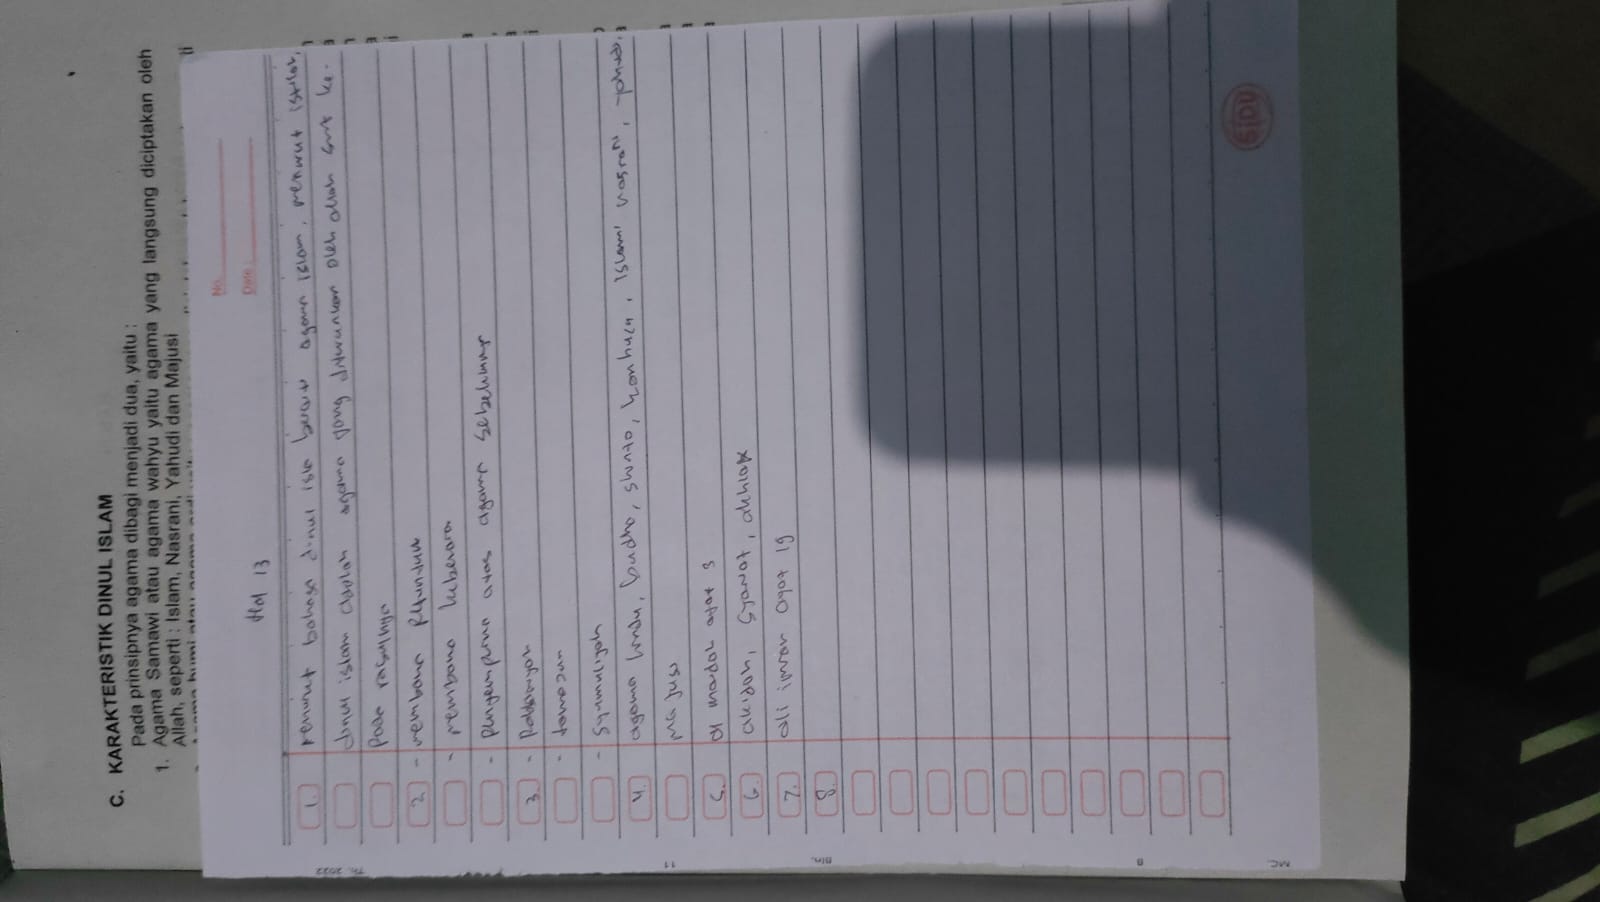 C. KARAKTERISTIK DINUL ISLAM
Pada prinsipnya agama dibagi menjadi dua, yaitu :
1. Agama Samawi atau agama wahyu yaitu agama yang langsung diciptakan oleh
Allah, seperti : Islam, Nasrani, Yahudi dan Majusi
No.
Date :
Hal 13
1. menurut bahasa dinul isla agama islam, menurut istilah,
dinul islam adalah agama yang diturunkan oleh allah swt ke-
pada rasulnya
2. - membawa
- membawa
- atas agama
3. -
-
- syumuliyah
4. agama hindu, budha, shinto, islam, nasrani,
majusi
5. ayat 3
6. akidah, akhlak
7. ali imran ayat 19
8.
SIDU